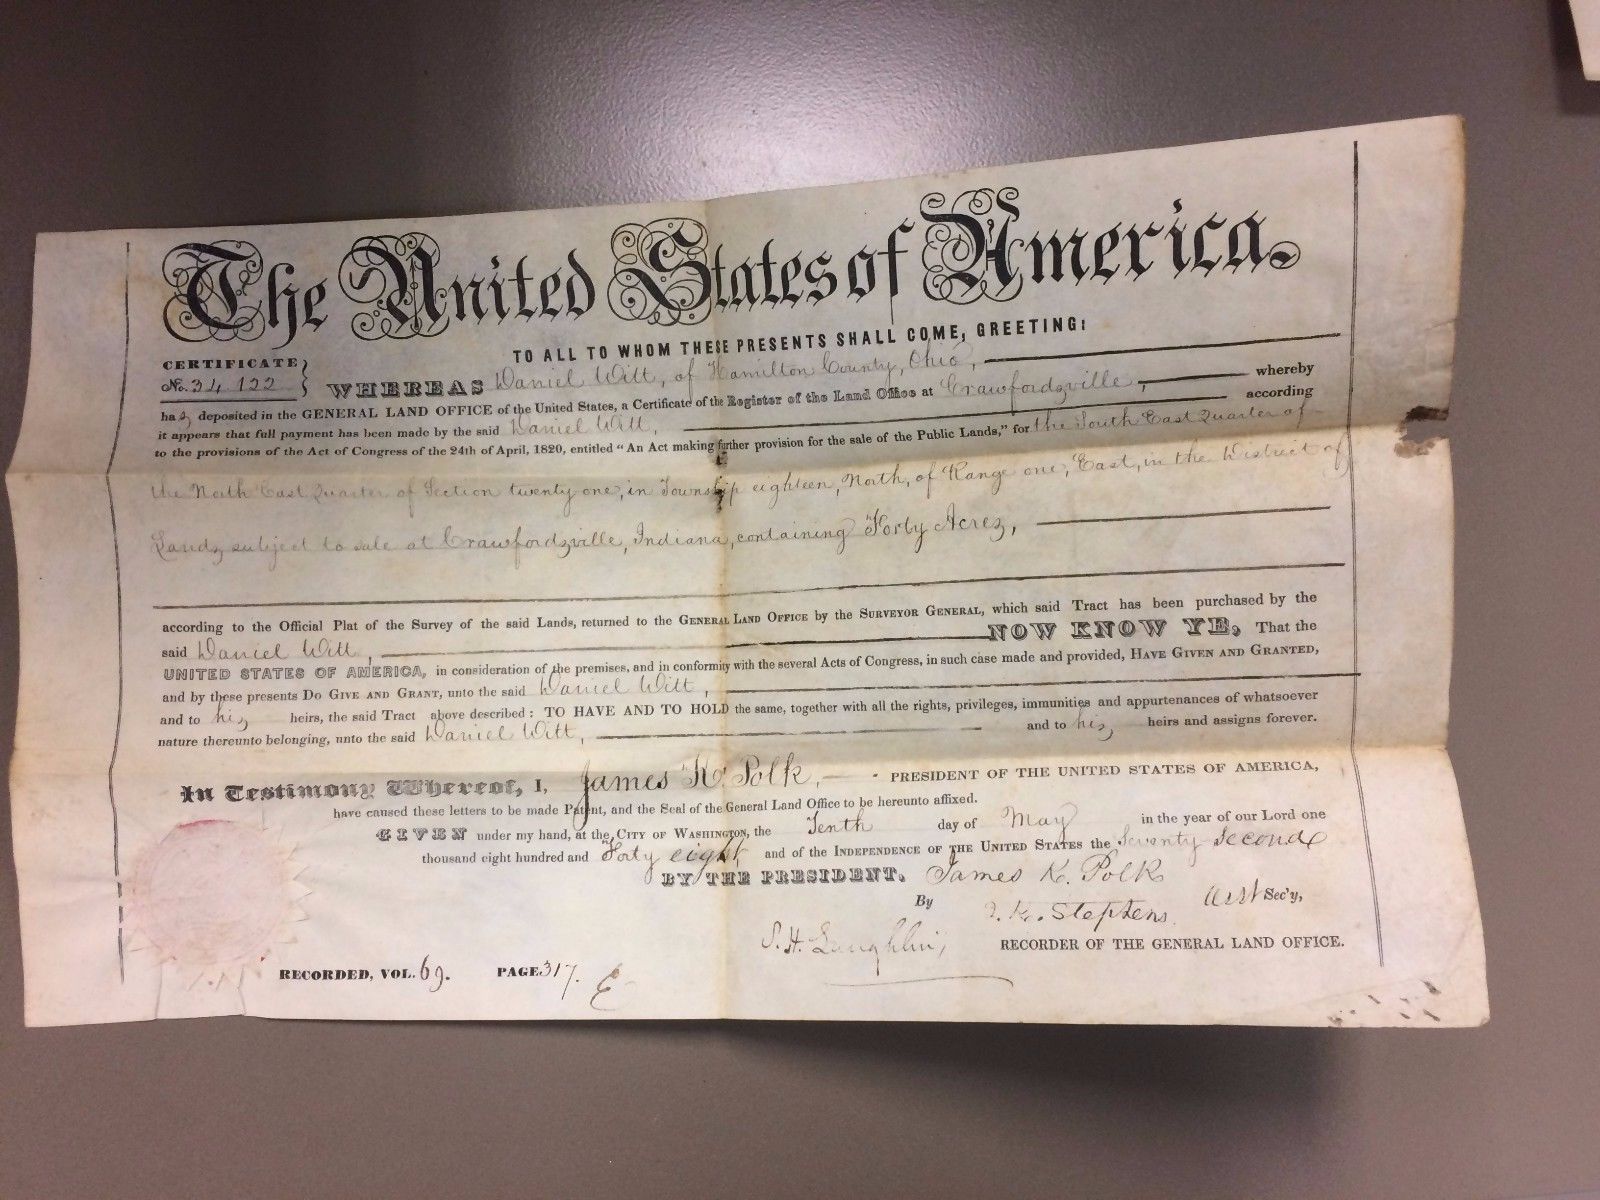 The United States of America.
TO ALL TO WHOM THESE PRESENTS SHALL COME, GREETING:
CERTIFICATE
No. 34122
WHEREAS Daniel Witt, of Hamilton County, Ohio, whereby
has deposited in the GENERAL LAND OFFICE of the United States, a Certificate of the Register of the Land Office at Crawfordsville, according
it appears that full payment has been made by the said Daniel Witt,
to the provisions of the Act of Congress of the 24th of April, 1820, entitled "An Act making further provision for the sale of the Public Lands," for the South East Quarter of
the North East Quarter of Section twenty one, in Township eighteen, North, of Range one, East, in the District of
Lands subject to sale at Crawfordsville, Indiana, containing Forty Acres,
according to the Official Plat of the Survey of the said Lands, returned to the GENERAL LAND OFFICE by the SURVEYOR GENERAL, which said Tract has been purchased by the
said Daniel Witt, NOW KNOW YE, That the
UNITED STATES OF AMERICA, in consideration of the premises, and in conformity with the several Acts of Congress, in such case made and provided, HAVE GIVEN AND GRANTED,
and by these presents DO GIVE AND GRANT, unto the said Daniel Witt,
and to his heirs, the said Tract above described: TO HAVE AND TO HOLD the same, together with all the rights, privileges, immunities and appurtenances of whatsoever
nature thereunto belonging, unto the said Daniel Witt, and to his heirs and assigns forever.
In Testimony Whereof, I, James K. Polk, PRESIDENT OF THE UNITED STATES OF AMERICA,
have caused these letters to be made Patent, and the Seal of the General Land Office to be hereunto affixed.
GIVEN under my hand, at the CITY OF WASHINGTON, the Tenth day of May in the year of our Lord one
thousand eight hundred and Forty eight and of the INDEPENDENCE OF THE UNITED STATES the Seventy Second
BY THE PRESIDENT. James K. Polk
By J. K. Stephens Asst Sec'y,
S. H. Laughlin, RECORDER OF THE GENERAL LAND OFFICE.
RECORDED, VOL. 69. PAGE 317. E